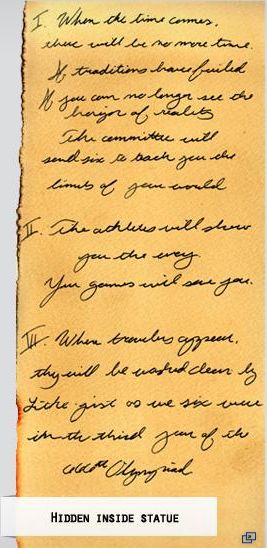 I. When the time comes,
there will be no more time.
If traditions have failed
If you can no longer see the
horizon of reality
The committee will
send six to teach you the
limits of your world
II. The athletes will show
you the way.
Your games will save you.
III. When troubles appear,
they will be washed clean by
gift as we six were
in the third year of the
Olympiad
HIDDEN INSIDE STATUE